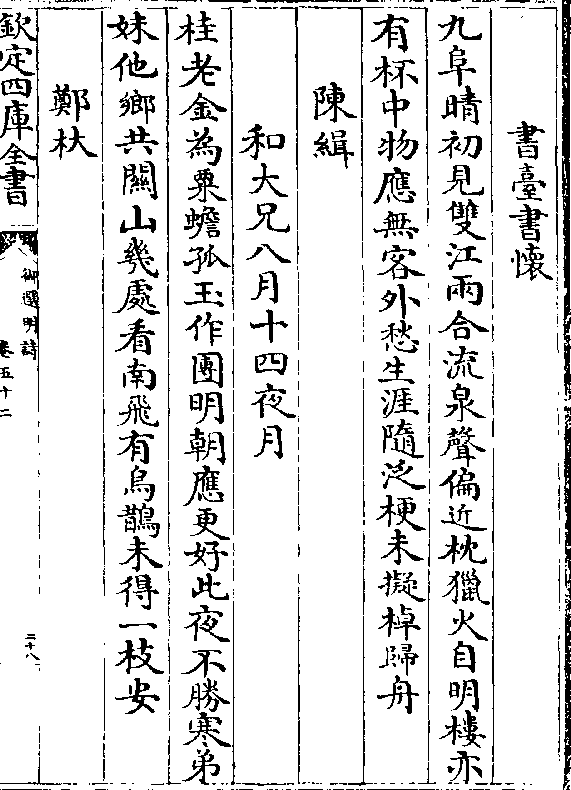 書臺書懷
九阜晴初見雙江雨合流泉聲偏近枕獵火自明樓亦
有杯中物應無客外愁生涯隨泛梗未擬棹歸舟
陳緝
和大兄八月十四夜月
桂老金為粟蟾孤玉作團明朝應更好此夜不勝寒弟
妹他鄉共關山幾處看南飛有烏鵲未得一枝安
鄭杕
欽定四庫全書
御選明詩
卷五十二
二十八